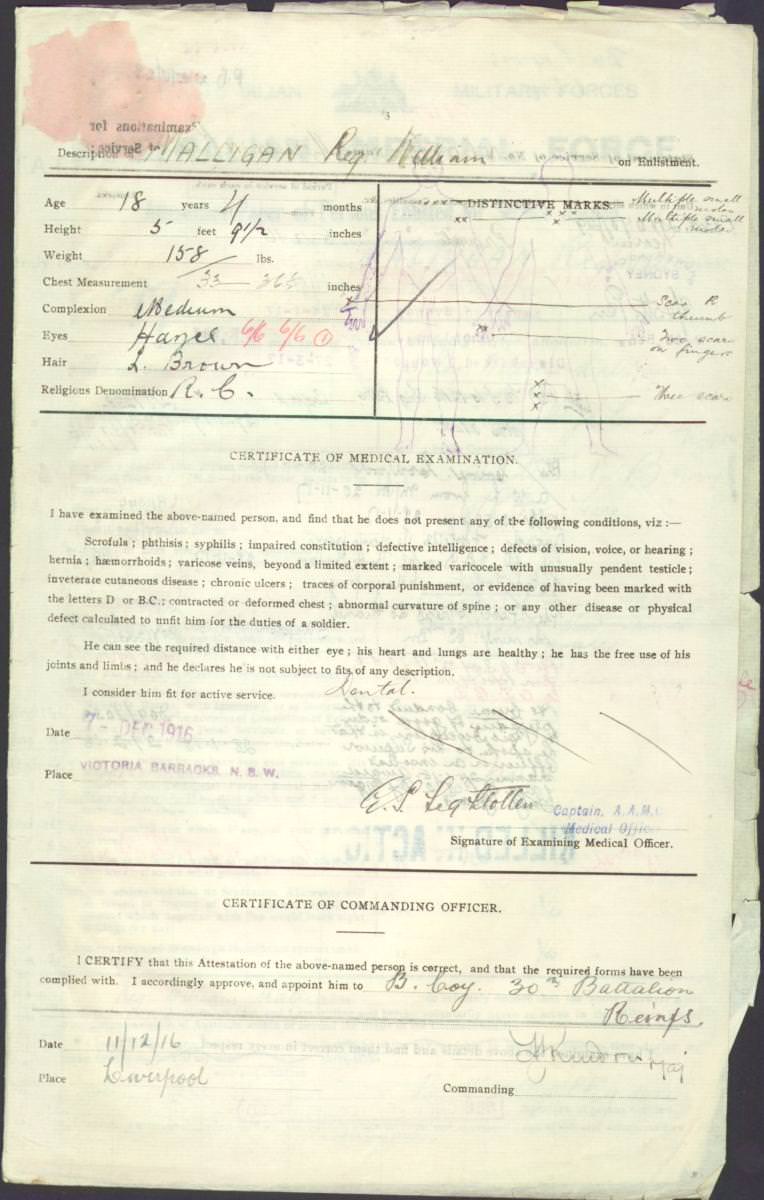 Description of MALLIGAN Reg William on Enlistment.
Age 18 years 4 months
Height 5 feet 9 1/2 inches
Weight 158 lbs.
Chest Measurement 33 - 36½ inches
Complexion Medium
Eyes Hazel 6/6 6/6
Hair L. Brown
Religious Denomination R. C.
DISTINCTIVE MARKS.
Multiple small
Multiple small
Scar R
thumb
Two scars
on fingers
Three scars
CERTIFICATE OF MEDICAL EXAMINATION.
I have examined the above-named person, and find that he does not present any of the following conditions, viz :—
Scrofula ; phthisis ; syphilis ; impaired constitution ; defective intelligence ; defects of vision, voice, or hearing ;
hernia ; hæmorrhoids ; varicose veins, beyond a limited extent ; marked varicocele with unusually pendent testicle ;
inveterate cutaneous disease ; chronic ulcers ; traces of corporal punishment, or evidence of having been marked with
the letters D or B.C. ; contracted or deformed chest ; abnormal curvature of spine ; or any other disease or physical
defect calculated to unfit him for the duties of a soldier.
He can see the required distance with either eye ; his heart and lungs are healthy ; he has the free use of his
joints and limbs ; and he declares he is not subject to fits of any description.
I consider him fit for active service. Dental.
Date 7 - DEC 1916
Place VICTORIA BARRACKS, N. S. W.
Captain, A.A.M.C
Medical Officer
Signature of Examining Medical Officer.
CERTIFICATE OF COMMANDING OFFICER.
I CERTIFY that this Attestation of the above-named person is correct, and that the required forms have been
complied with. I accordingly approve, and appoint him to B. Coy. 30th Battalion
Reinfs.
Date 11/12/16
Maj
Place Liverpool
Commanding